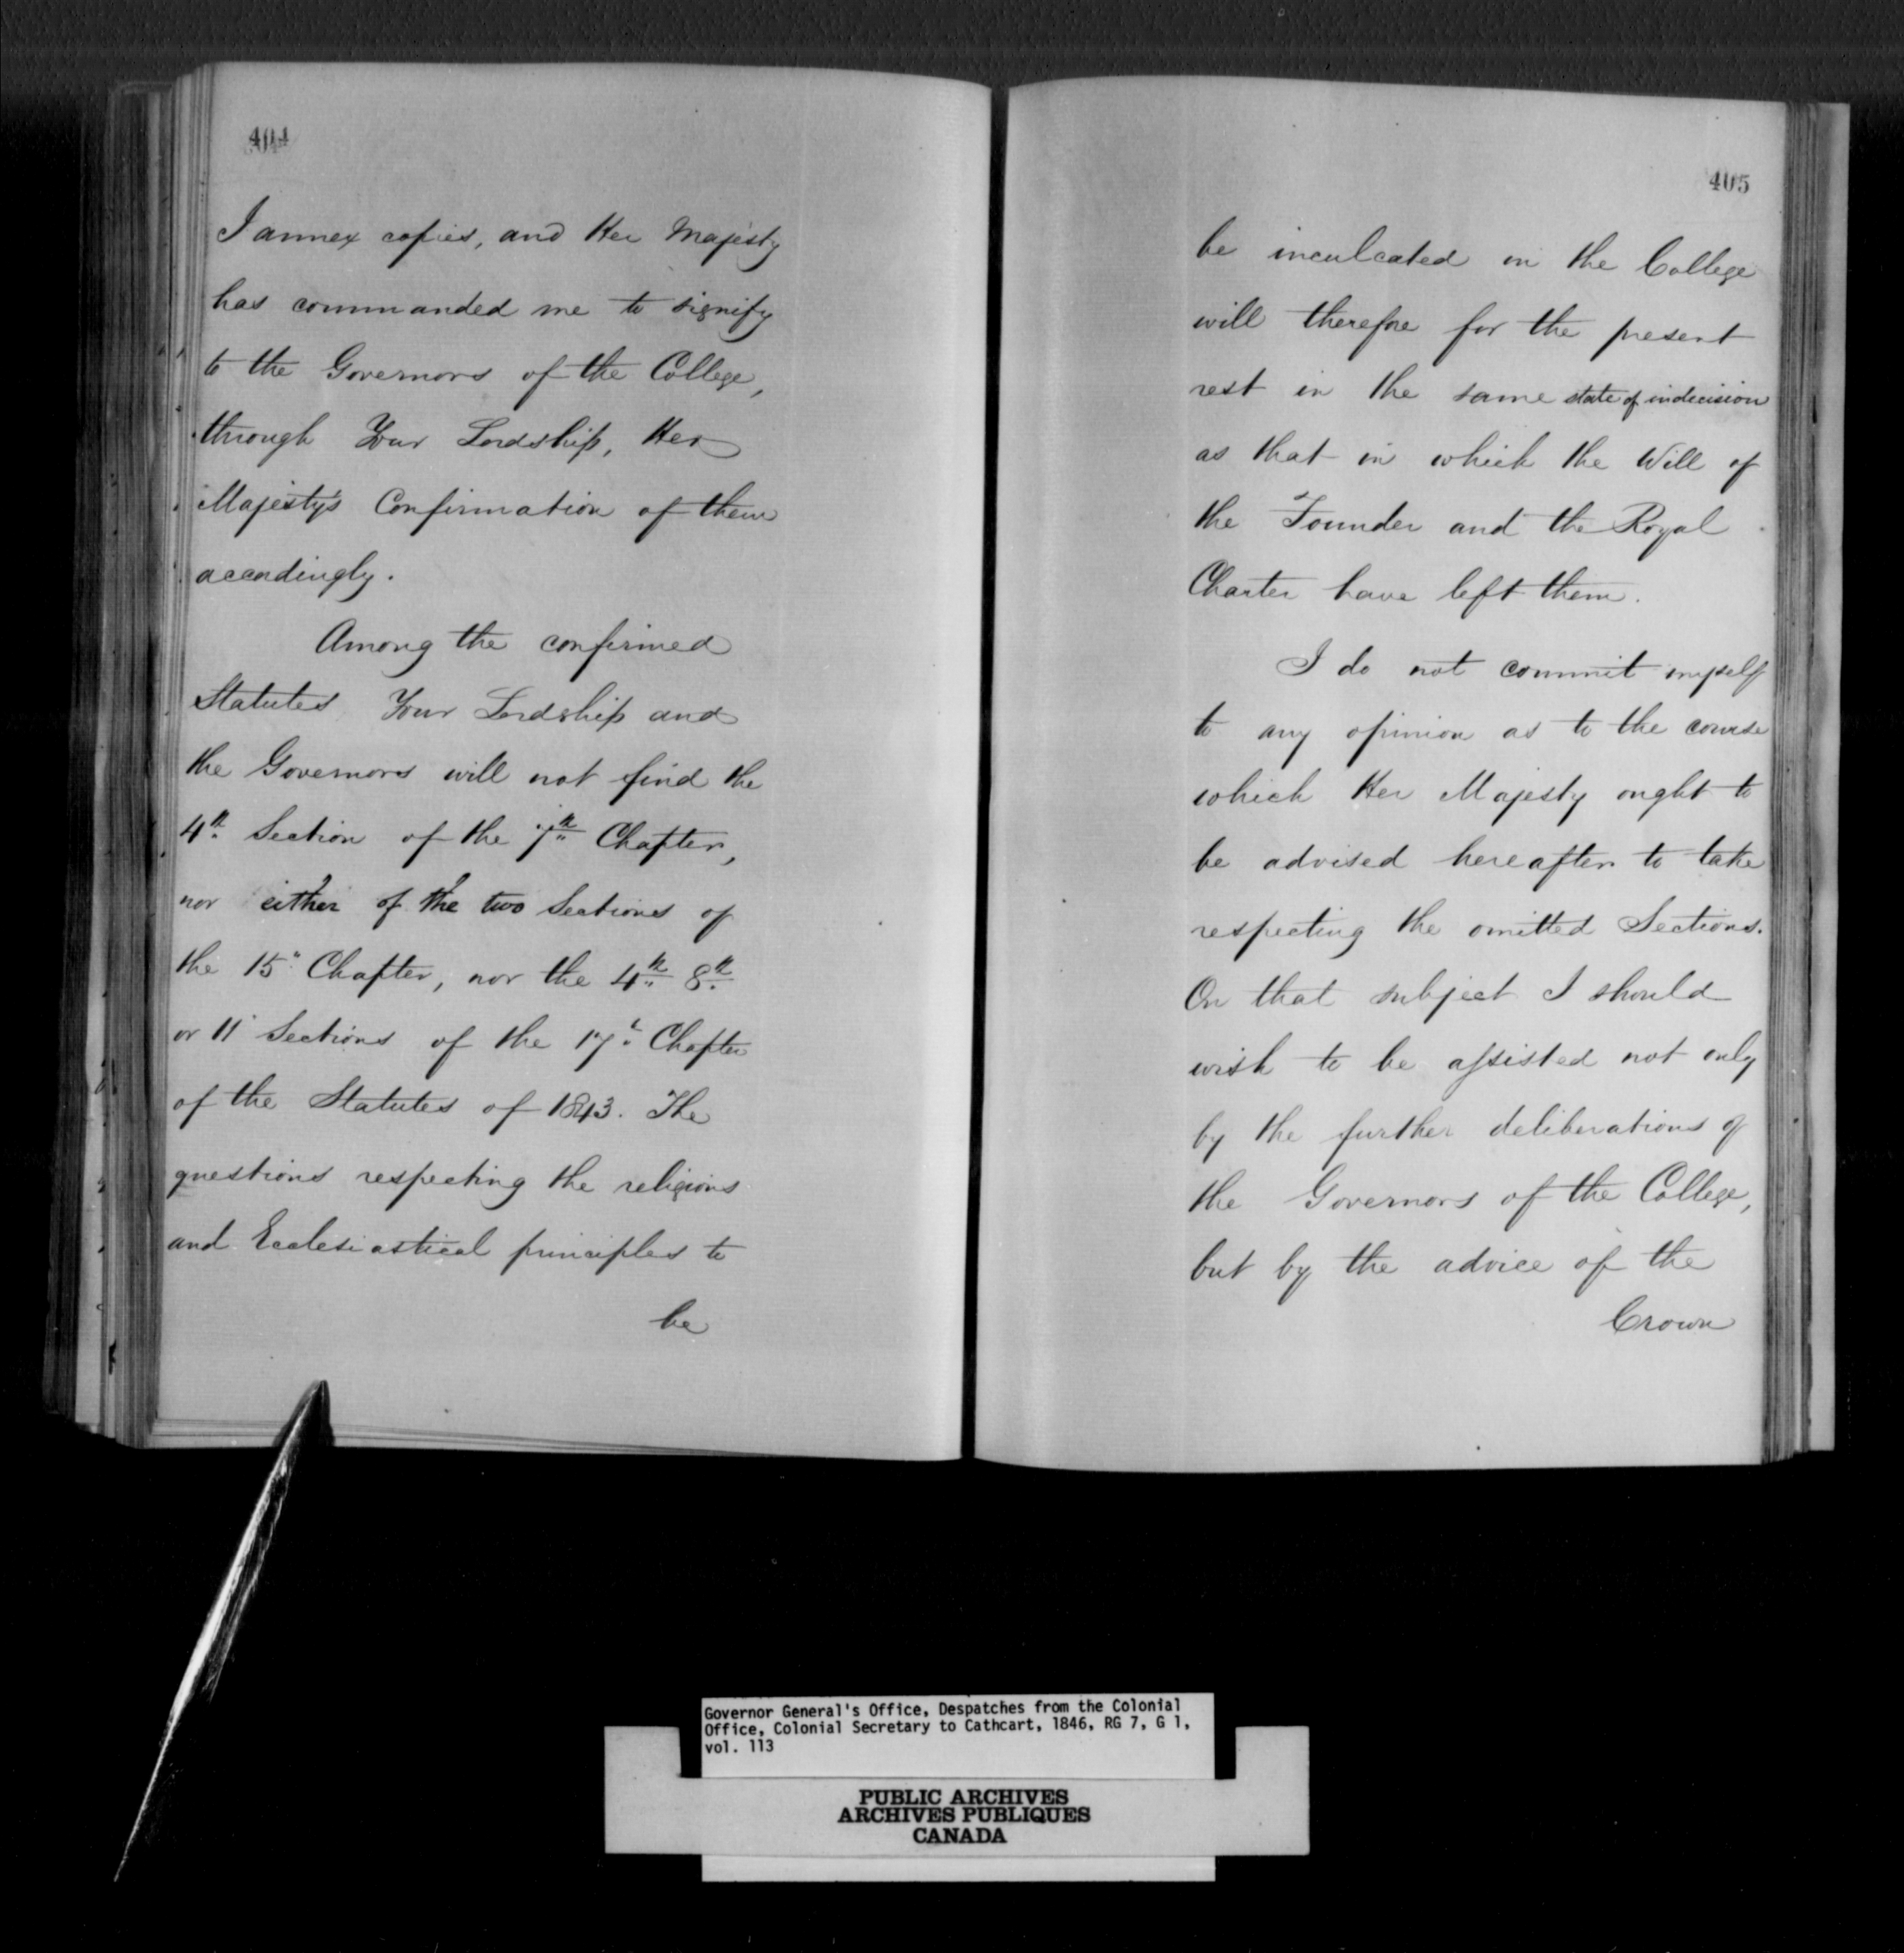 404
I annex copies, and Her Majesty
has commanded me to signify
to the Governors of the College,
through Your Lordship, Her
Majesty's Confirmation of them
accordingly.
Among the confirmed
Statutes Your Lordship and
the Governors will not find the
4th Section of the 7th Chapter,
nor either of the two Sections of
the 15" Chapter, nor the 4th 8th
or 11 Sections of the 17th Chapter
of the Statutes of 1843. The
questions respecting the religious
and Ecclesiastical principles to
be
405
be inculcated in the College
will therefore for the present
rest in the same state of indecision
as that in which the Will of
the Founder and the Royal
Charter have left them.
I do not commit myself
to any opinion as to the course
which Her Majesty ought to
be advised hereafter to take
respecting the omitted Sections.
On that subject I should
wish to be assisted not only
by the further deliberations of
the Governors of the College,
but by the advice of the
Crown
Governor General's Office, Despatches from the Colonial
Office, Colonial Secretary to Cathcart, 1846, RG 7, G 1,
vol. 113
PUBLIC ARCHIVES
ARCHIVES PUBLIQUES
CANADA